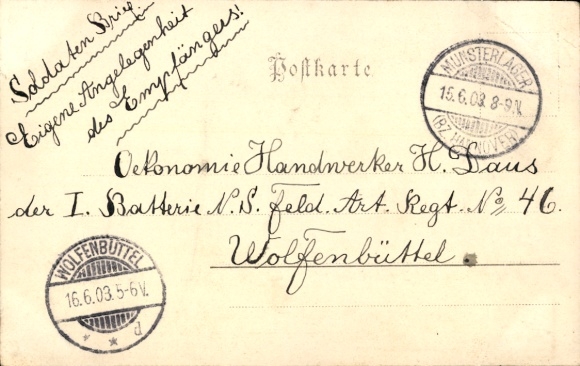 Soldaten Brief
Eigene Angelegenheit
des Empfängers!
Postkarte
MUNSTERLAGER
15.6.03. 8-9.V.
(BZ. HANNOVER)
Oekonomie Handwerker H. Daus
der I. Batterie N. S. Feld. Art. Regt. No 46.
Wolfenbüttel.
WOLFENBÜTTEL
16.6.03. 5-6 V.
* * P